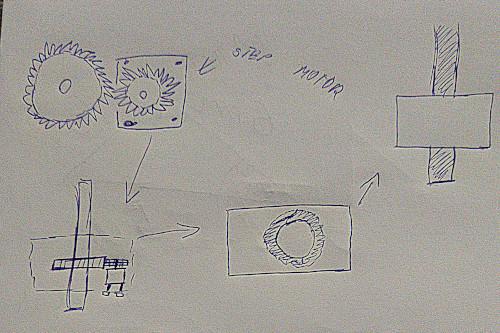 STEP MOTOR